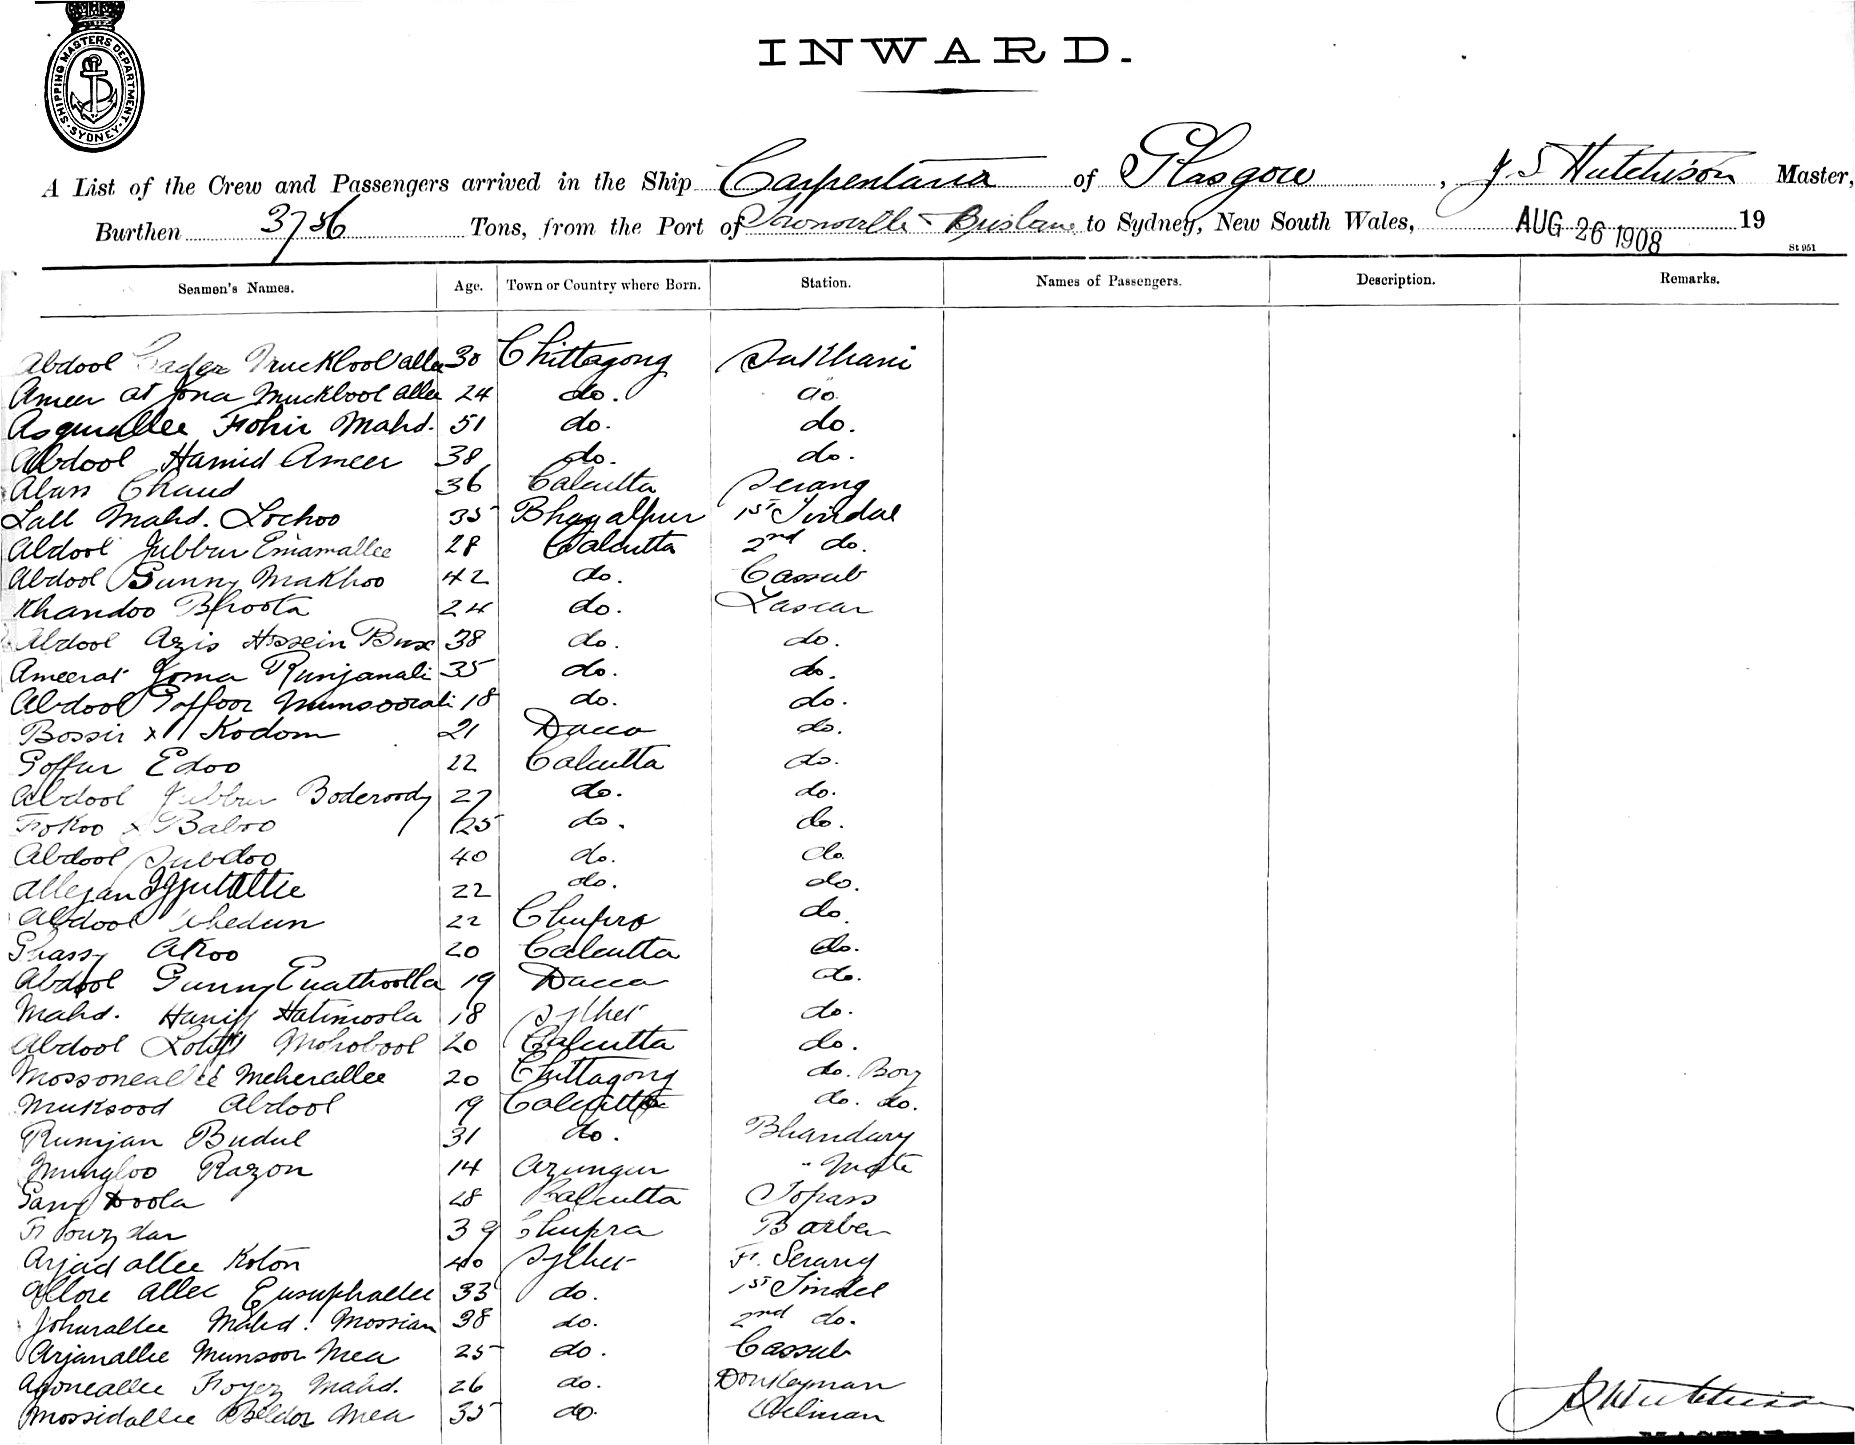 SHIPPING MASTERS DEPARTMENT. SYDNEY
INWARD.
A List of the Crew and Passengers arrived in the Ship Carpentaria of Glasgow, J. S Hutchison Master,
Burthen 3756 Tons, from the Port of Townsville & Brisbane to Sydney, New South Wales, AUG 26 1908 19
St 951
Seamen's Names. Age. Town or Country where Born. Station. Names of Passengers. Description. Remarks.
Abdool Cader Muckbool allee 30 Chittagong Sukhani
Ameer at Jona Muckbool allee 24 do. do.
Asgurallee Fohir Mahd. 51 do. do.
Abdool Hamid Ameer 38 do. do.
Alam Chand 36 Calcutta Serang
Lall Mahd. Lochoo 35 Bhagalpur 1st Tindal
Abdool Jubbur Emamallee 28 Calcutta 2nd do.
Abdool Gunny Makhoo 42 do. Cassub
Khandoo Bhoota 24 do. Lascar
Abdool Azis Hossein Bux 38 do. do.
Ameerat Joma Runjanali 35 do. do.
Abdool Goffoor Munsoorali 18 do. do.
Bossir x Kodom 21 Dacca do.
Goffur Edoo 22 Calcutta do.
Abdool Jubbur Boderoody 27 do. do.
Fokoo x Baboo 25 do. do.
Abdool Subdoo 40 do. do.
Allejan 22 do. do.
Abdool 22 Chupra do.
Ghassy Akoo 20 Calcutta do.
Abdool Gunny Enathoolla 19 Dacca do.
Mahd. Haniff Hatimoola 18 Sylhet do.
Abdool Lotiff Mohobool 20 Calcutta do.
Mossoneallee Meherallee 20 Chittagong do. Boy
Muksood Abdool 19 Calcutta do. do.
Rumjan Budul 31 do. Bhandary
Mungloo Razon 14 Azungur " Mate
Gang Doola 28 Calcutta Topass
Fouzdar 39 Chupra Barber
Arjad allee Koton 40 Sylhet F. Serang
Allore allee Eusuphallee 33 do. 1st Tindal
Johurallee Mahd. Mossian 38 do. 2nd do.
Arjanallee Munsoor Mea 25 do. Cassub
Agoneallee Foyez Mahd. 26 do. Donkeyman
Mossidallee Beldar Mea 35 do. Oilman
J S Hutchison
MASTER